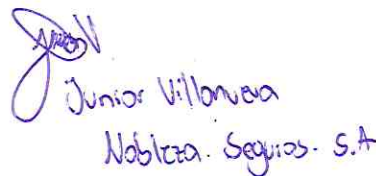 Junior Villanueva
Nobleza. Seguros. S.A